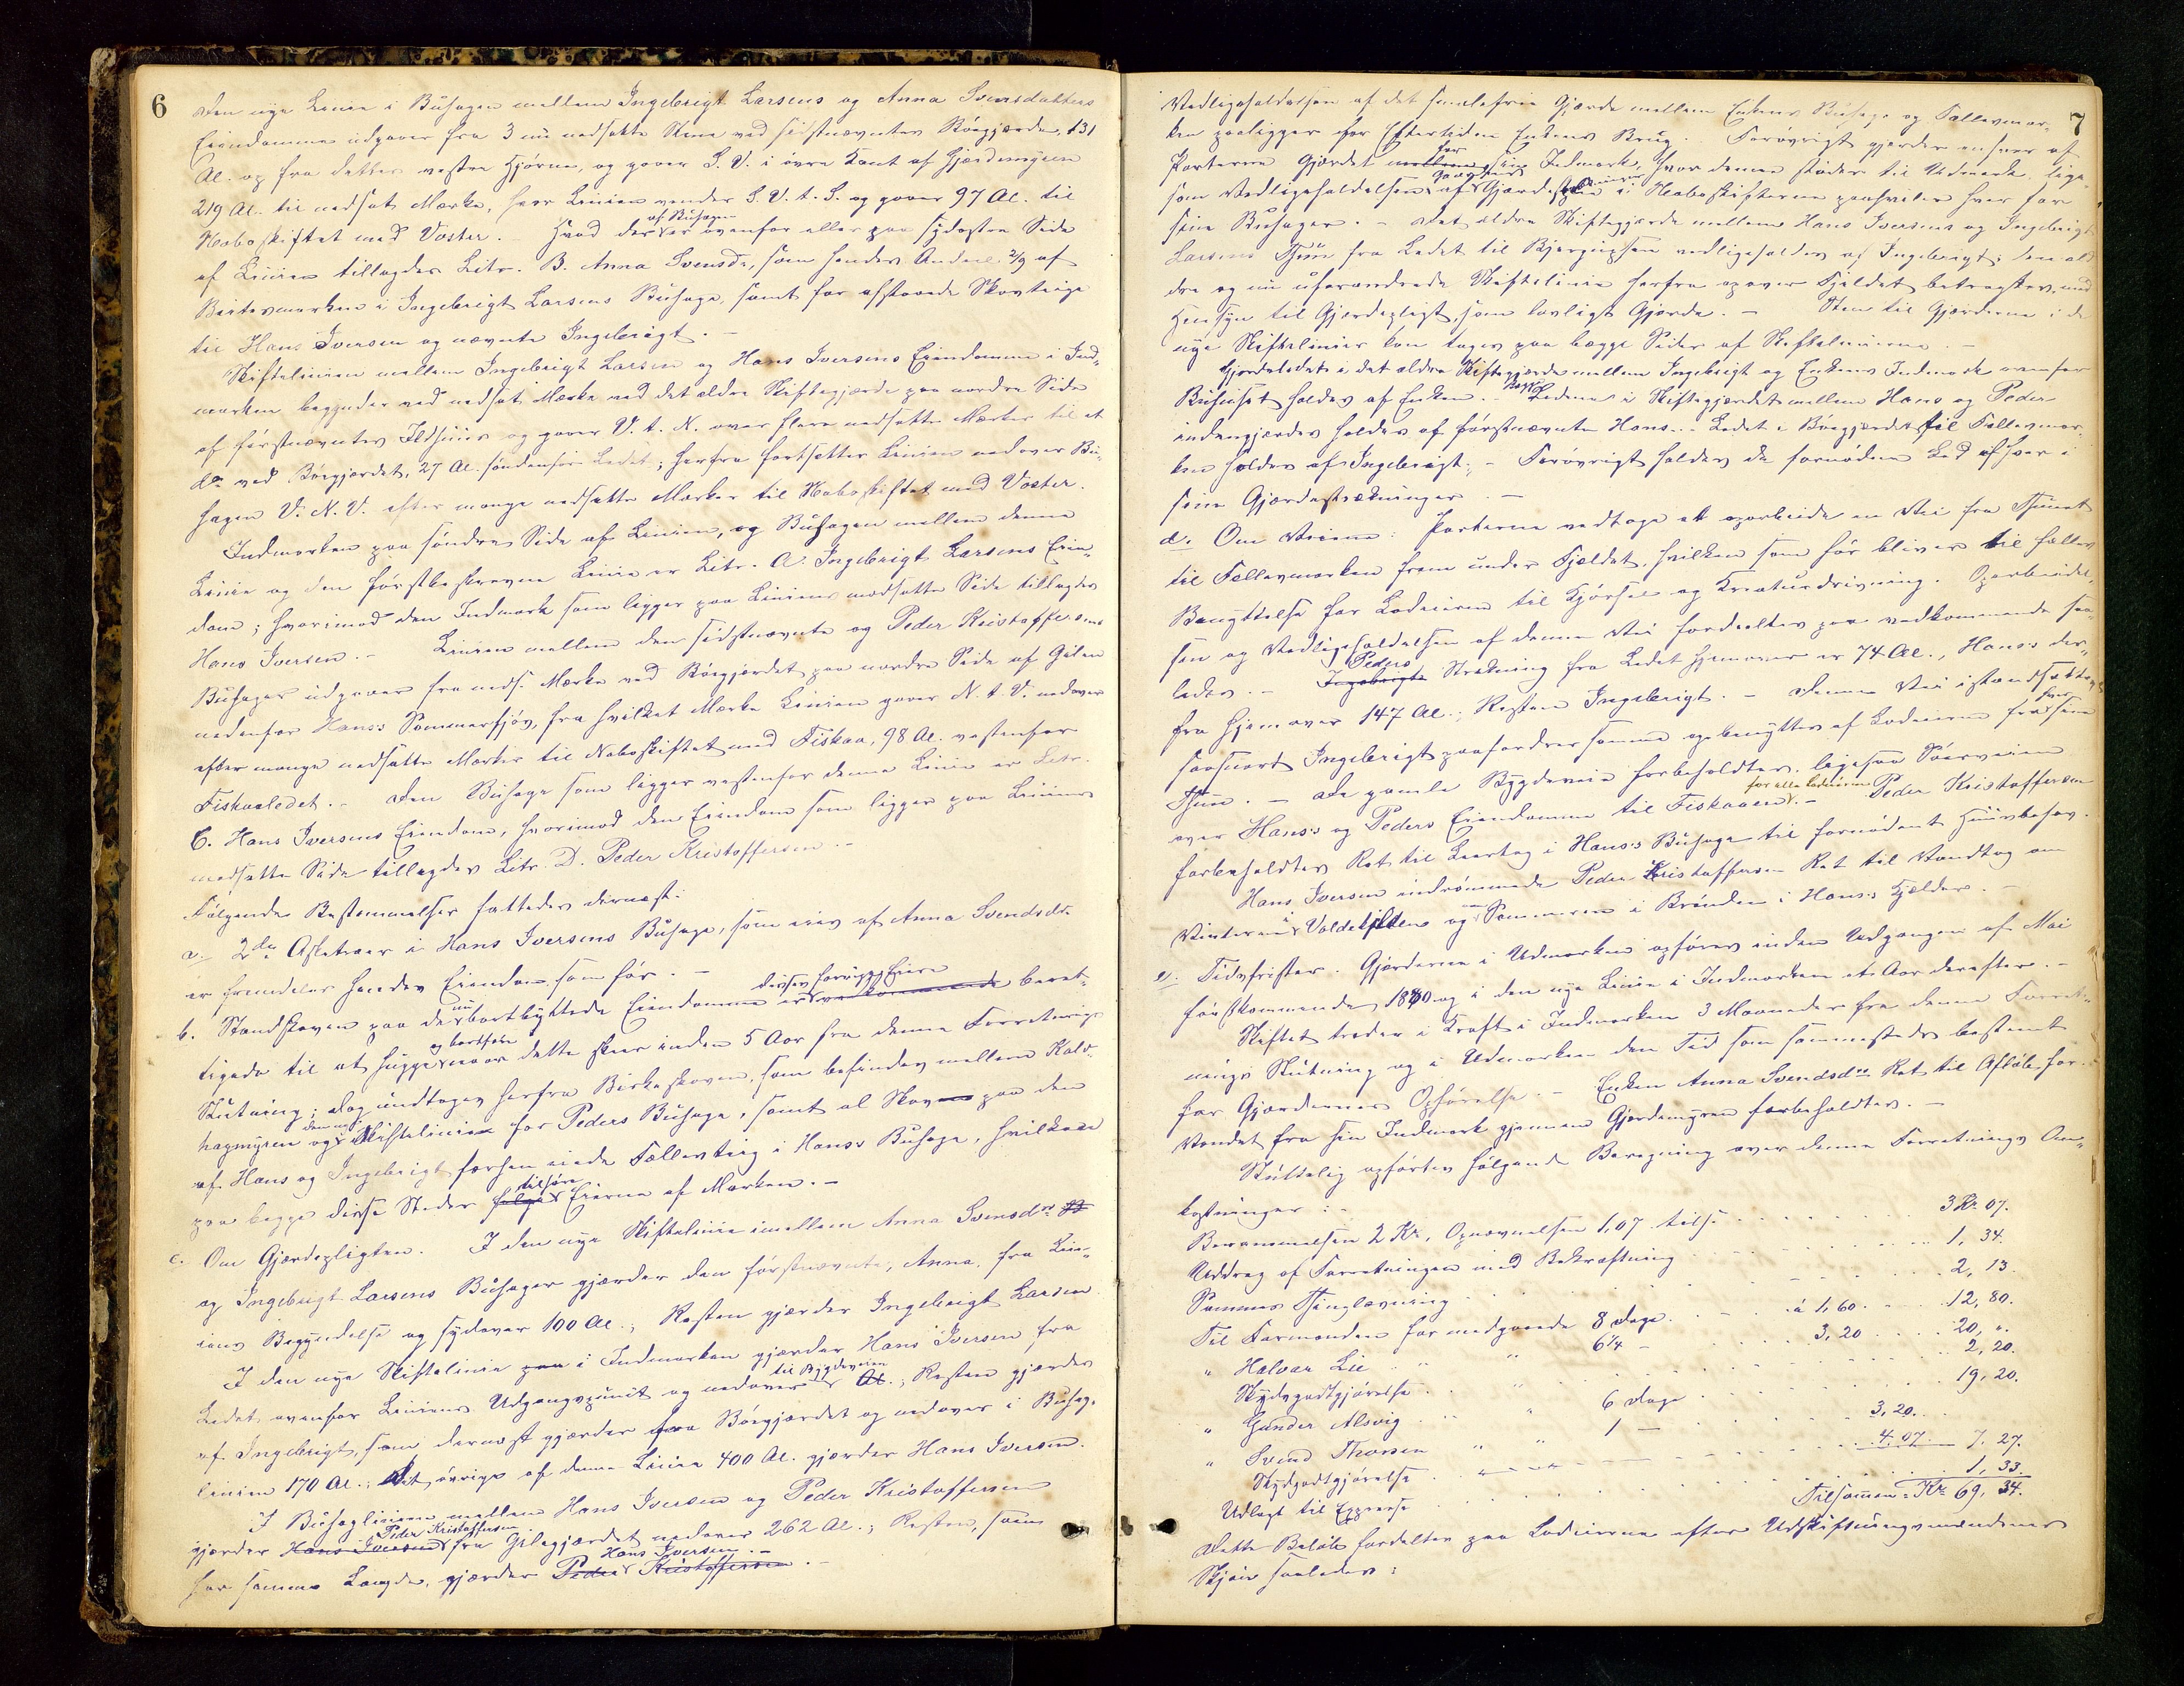 6
Den nye Linie i Buhagen mellem Ingebrigt Larsens og Anna Svensdatters
Eiendomme udgaaer fra 3 nu nedsatte Stene ved sidstnævntes Børgjærde, 131
Al. op fra dettes vestre Hjørne, og gaaer S. V. i øvre Kant af Gjærdemyren
219 Al. til nedsat Mærke, hvor Linien vender S. V. t. S. og gaaer 97 Al. til
Naboskiftet med Voster. – Hvad der af Buhagen er ovenfor eller paa sydøstre Side
af Linien tillagdes Litr. B. Anna Svensdr, som hendes Andeel 2/9 af
Beitesmarken i Ingebrigt Larsens Buhage, samt for afstaaede Skovteige
til Hans Iversen og nævnte Ingebrigt. –
Skiftelinien mellem Ingebrigt Larsen og Hans Iversens Eiendomme i Ind-
marken begynder ved nedsat Mærke ved det ældre Skiftegjærde paa nordre Side
af førstnævntes Ildhuus og gaaer V. t. N. over flere nedsatte Mærker til et
do ved Børgjærdet, 27 Al. søndenfor Ledet; herfra fortsætter Linien nedover Bu-
hagen V. N. V. efter mange nedsatte Mærker til Naboskiftet med Voster.
Indmarken paa søndre Side af Linien, og Buhagen mellem denne
Linie og den førstbeskrevne Linie er Litr. A. Ingebrigt Larsens Eien-
dom; hvorimod den Indmark som ligger paa Liniens modsatte Side tillagdes
Hans Iversen. – Linien mellem den sidstnævnte og Peder Kristoffersens
Buhager udgaaer fra neds. Mærke ved Børgjærdet paa nordre Side af Gilen
nedenfor Hans's Sommerfjøs, fra hvilket Mærke Linien gaaer N. t. V. nedover
efter mange nedsatte Mærker til Naboskiftet med Fiskaa, 98 Al. vestenfor
Fiskaaledet. – Den Buhage som ligger vestenfor denne Linie er Litr.
C. Hans Iversens Eiendom, hvorimod den Eiendom som ligger paa Liniens
modsatte Side tillagdes Litr. D. Peder Kristoffersen. –
Følgende Bestemmelser fattedes dernæst:
a. 2de Asketræer i Hans Iversens Buhage, som eies af Anna Svendsdr.
er fremdeles hendes Eiendom som før. –
b. Standskoven paa de nu bortbyttede Eiendomme er disses forrige Eiere vedkommende beret-
tigede til at hugge og bortføre naar dette skeer inden 5 Aar fra denne Forretnings
Slutning; dog undtages herfra Birkeskoven, som befindes mellem Kald-
hagmyren og den nye Skiftelinie for Peders Buhage, samt al Skov paa den
af Hans og Ingebrigt forhen eiede Fællesteig i Hans's Buhage, hvilken
paa begge disse Steder følge tilhøre Eierne af Marken. –
c. Om Gjærdepligten. I den nye Skiftelinie imellem Anna Svensdr
og Ingebrigt Larsens Buhager gjærder den førstnævnte, Anna, fra Lini-
ens Begyndelse og sydover 100 Al.; Resten gjærder Ingebrigt Larsen
I den nye Skiftelinie paa i Indmarken gjærder Hans Iversen fra
Ledet ovenfor Liniens Udgangspunkt og nedover til Bygdeveien Al.; Resten gjærdes
af Ingebrigt, som dernæst gjærder fra Børgjærdet og nedover i Buhag-
linien 170 Al.; det øvrige af denne Linie 400 Al. gjærder Hans Iversen.
I Buhaglinien mellem Hans Iversen og Peder Kristoffersen
gjærder Hans Iversen Peder Kristoffersen fra Gilegjærdet nedover 262 Al.; Resten, som
har samme Længde, gjærder Peder Kristoffersen Hans Iversen. –
7
Vedligeholdelsen af det  Gjærde mellem Enkens Buhage og Fællesmar-
ken paaligger for Eftertiden Enkens Brug. Forøvrigt gjærder enhver af
Parterne Gjærdet mellem for sin Indmark, hvor denne støder til Udmark, lige-
som Vedligeholdelsen af Gjærdes i Naboskifterne paahviler hver for
sine Buhager. – Det ældre Skiftegjærde mellem Hans Iversens og Ingebrigt
Larsens Thun fra Ledet til  vedligeholdes af Ingebrigt; den æl-
dre og nu uforandrede Skiftelinie herfra opover Fjeldet betragtes, med
Hensyn til Gjærdepligt, som lovligt Gjærde. – Sten til Gjærderne i de
nye Skiftelinier kan tages paa begge Sider af Skiftelinierne –
Gjærdeledet i det ældre Skiftegjærde mellem Ingebrigt og Enkens Indmark ovenfor
Buhuset holdes af Enken. – Begge Ledene i Skiftegjærdet mellem Hans og Peder
indengjærdes holdes af førstnævnte Hans. – Ledet i Børgjærdet til Fællesmar-
ken holdes af Ingebrigt; – Forøvrigt holdes de fornødne Led af hver i
sine Gjærdestrækninger. –
d. Om Veiene: Parterne vedtoge at oparbeide en Vei fra Thunet
til Fællesmarken frem under Fjeldet, hvilken som før bliver til fælles
Benyttelse for Lodeierne til Kjørsel og Kreaturdrivning. Oparbeidel-
sen og Vedligeholdelsen af denne Vei fordeeltes paa vedkommende saa-
ledes. – Ingebrigts Peders Strækning fra Ledet hjemover er 74 Al., Hans's der-
fra hjemover 147 Al.; Resten Ingebrigt. – Denne Vei istandsættes
saasnart Ingebrigt paafordrer samme og benyttes af Lodeierne fra hver sine
Thun. – De gamle Bygdeveie forbeholdtes, ligesaa Søerveien
over Hans's og Peders Eiendomme til Fiskaaen for alle Lodeierne. – Peder Kristoffersen
forbeholdtes Ret til Leertag i Hans's Buhage til fornødent Huusbehov.
Hans Iversen indrømmede Peder Kristoffersen Ret til Vandtag om
Vinteren i  og om Sommeren i Brønden i Hans's Kjelder. –
e. Tidsfrister. Gjærderne i Udmarken opføres inden Udgangen af Mai
førstkommende 1880 og i den nye Linie i Indmarken et Aar derefter. –
Skiftet træder i Kraft i Indmarken 3 Maaneder fra denne Forret-
nings Slutning og i Udmarken den Tid som sammesteds bestemt
for Gjærdernes Opførelse. – Enken Anna Svendsdrs Ret til Afløb for
Vandet fra sin Indmark gjennem Gjærdemyren forbeholdtes. –
Sluttelig opførtes følgende Beregning over denne Forretnings Om-
kostninger: –
Berammelsen 2 Kr, Opnævnelsen 1,07 tils. 3 Kr 07.
Uddrag af Forretningen med Bekræftning 1, 34.
Sammes Thinglæsning 2, 13.
Til Formanden for medgaaede 8 Dage à 1,60. 12, 80.
" Halvar Lie " " 6¼ – 3,20 20, ".
Skydsgodtgjørelse 2, 20.
" Gunder Alsvig " " 6 Dage 19, 20.
" Svend Thorsen " " 1 – 3,20.
Skydsgodtgjørelse 4,07 7, 27.
Udlagt til Expresse 1, 33.
Tilsammen = Kr 69, 34.
Dette Beløb fordeltes paa Lodeierne efter Udskiftningsmændenes
Skjøn saaledes: